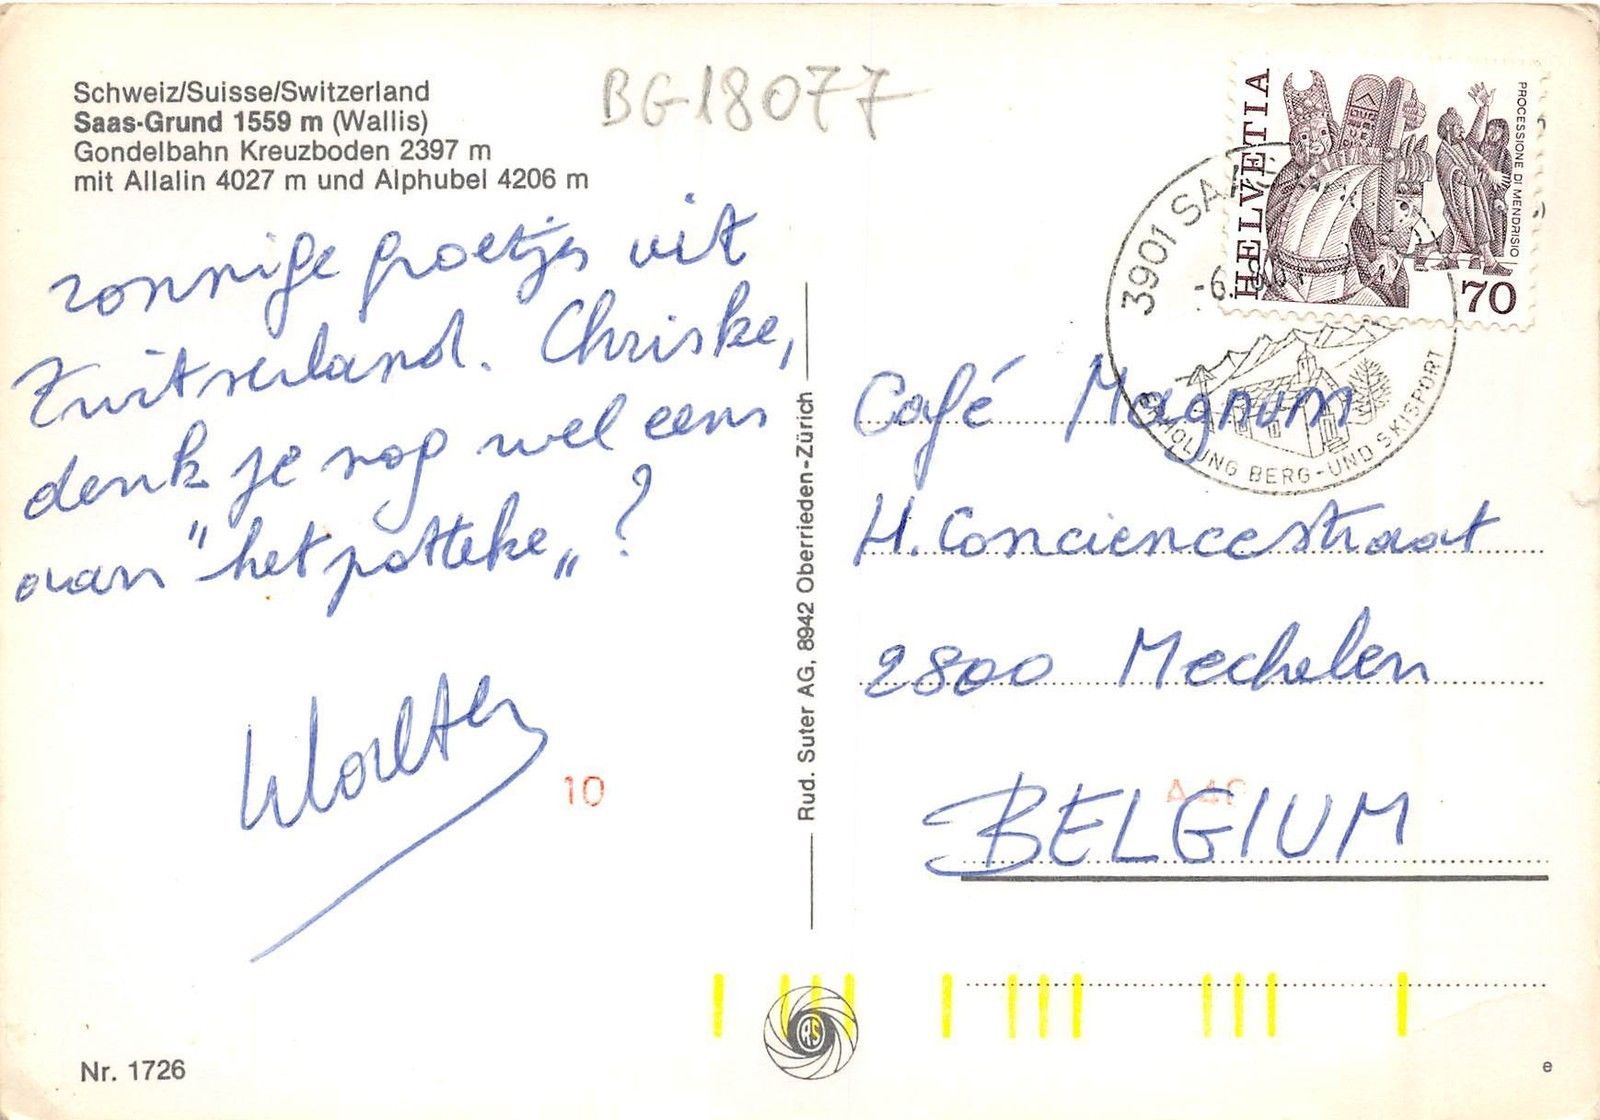 Schweiz/Suisse/Switzerland
Saas-Grund 1559 m (Wallis)
Gondelbahn Kreuzboden 2397 m
mit Allalin 4027 m und Alphubel 4206 m
BG18077
HELVETIA
PROCESSIONE DI MENDRISIO
70
3901 SA
-6.
ERHOLUNG BERG-UND SKISPORT
zonnige groetjes uit
Zwitserland. Chriske,
denk je nog wel eens
aan "het potteke„ ?
Walter
10
Rud. Suter AG, 8942 Oberrieden-Zürich
Café Magnum
H. Conciencestraat
2800 Mechelen
BELGIUM
RS
Nr. 1726
e